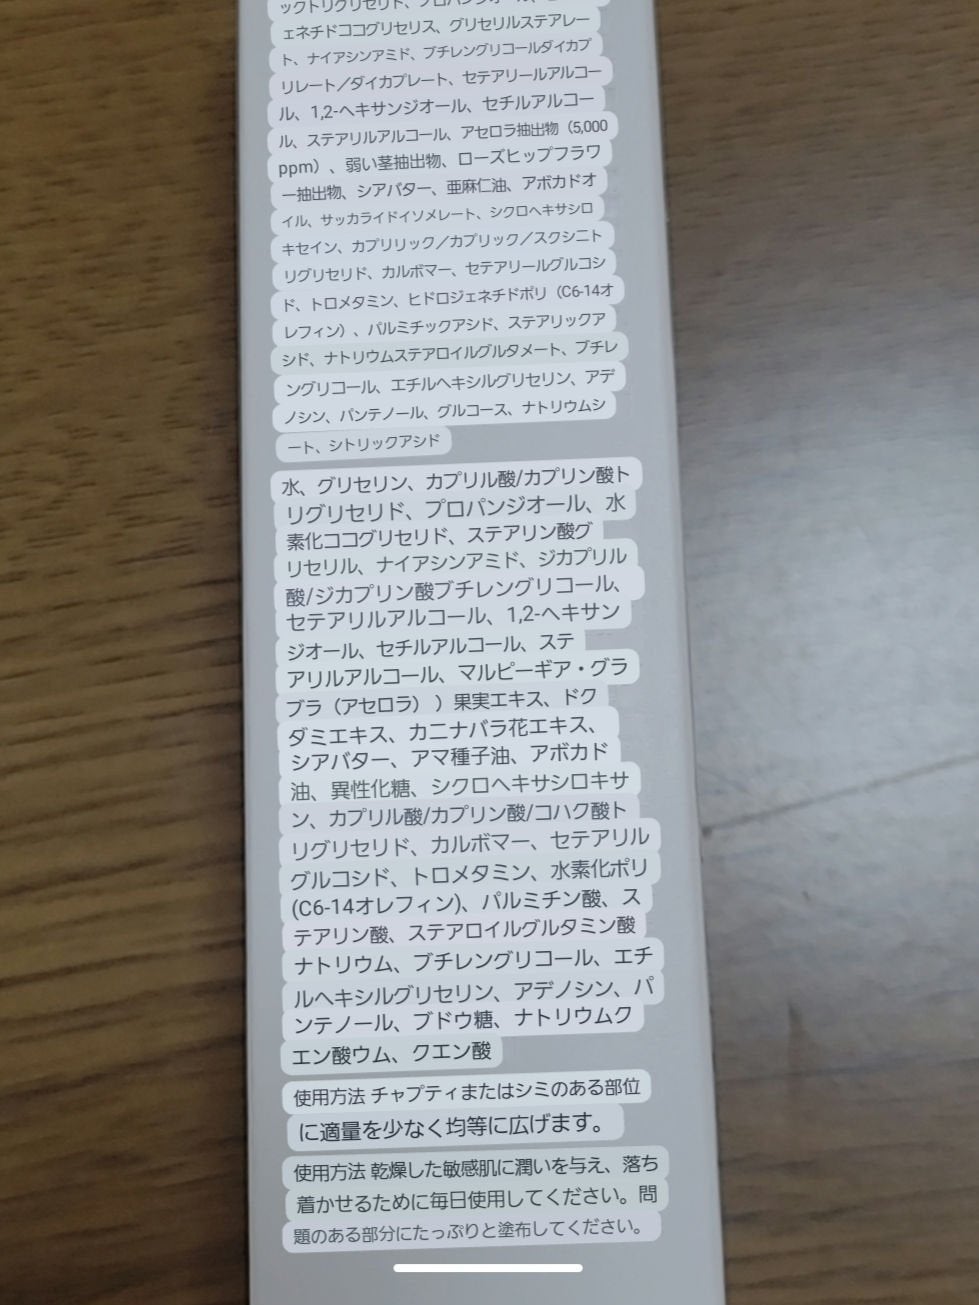 ックトリグリセリド、プロパンジオール、
ェネチドココグリセリス、グリセリルステアレー
ト、ナイアシンアミド、ブチレングリコールダイカプ
リレート／ダイカプレート、セテアリールアルコー
ル、1,2-ヘキサンジオール、セチルアルコー
ル、ステアリルアルコール、アセロラ抽出物（5,000
ppm）、弱い茎抽出物、ローズヒップフラワ
ー抽出物、シアバター、亜麻仁油、アボカドオ
イル、サッカライドイソメレート、シクロヘキサシロ
キセイン、カプリリック／カプリック／スクシニト
リグリセリド、カルボマー、セテアリールグルコシ
ド、トロメタミン、ヒドロジェネチドポリ（C6-14オ
レフィン）、パルミチックアシド、ステアリックア
シド、ナトリウムステアロイルグルタメート、ブチレ
ングリコール、エチルヘキシルグリセリン、アデ
ノシン、パンテノール、グルコース、ナトリウムシ
ート、シトリックアシド
水、グリセリン、カプリル酸/カプリン酸ト
リグリセリド、プロパンジオール、水
素化ココグリセリド、ステアリン酸グ
リセリル、ナイアシンアミド、ジカプリル
酸/ジカプリン酸ブチレングリコール、
セテアリルアルコール、1,2-ヘキサン
ジオール、セチルアルコール、ステ
アリルアルコール、マルピーギア・グラ
ブラ（アセロラ））果実エキス、ドク
ダミエキス、カニナバラ花エキス、
シアバター、アマ種子油、アボカド
油、異性化糖、シクロヘキサシロキサ
ン、カプリル酸/カプリン酸/コハク酸ト
リグリセリド、カルボマー、セテアリル
グルコシド、トロメタミン、水素化ポリ
(C6-14オレフィン)、パルミチン酸、ス
テアリン酸、ステアロイルグルタミン酸
ナトリウム、ブチレングリコール、エチ
ルヘキシルグリセリン、アデノシン、パ
ンテノール、ブドウ糖、ナトリウムク
エン酸ウム、クエン酸
使用方法 チャプティまたはシミのある部位
に適量を少なく均等に広げます。
使用方法 乾燥した敏感肌に潤いを与え、落ち
着かせるために毎日使用してください。問
題のある部分にたっぷりと塗布してください。